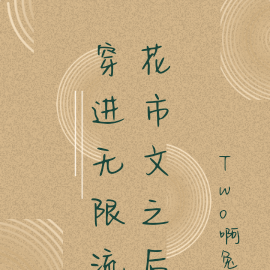 花市文之后
穿进无限流
TWO啊兔